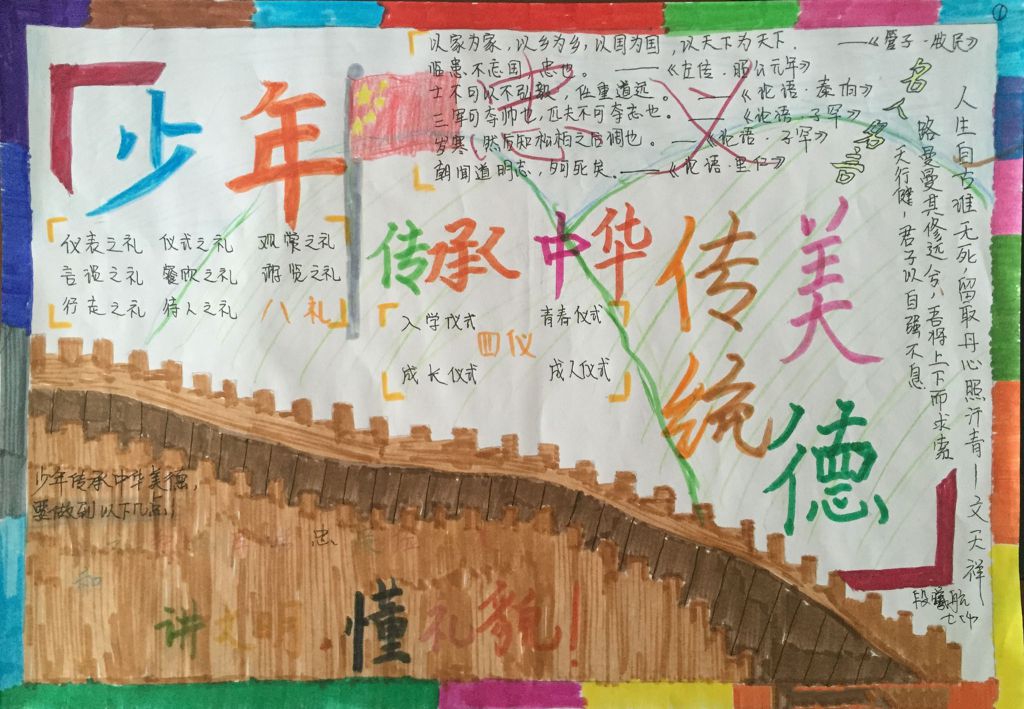 ①
少年
以家为家，以乡为乡，以国为国，以天下为天下．——《管子·牧民》
临患不忘国，忠也。——《左传·昭公元年》
士不可以不弘毅，任重道远。——《论语·泰伯》
三军可夺帅也，匹夫不可夺志也。——《论语·子罕》
岁寒，然后知松柏之后调也。——《论语·子罕》
朝闻道明志，夕可死矣。——《论语·里仁》
名人名言
人生自古谁无死，留取丹心照汗青—文天祥
路曼曼其修远兮，吾将上下而求索
天行健，君子以自强不息
仪表之礼 仪式之礼 观赏之礼
言谈之礼 餐饮之礼 游览之礼
行走之礼 待人之礼 八礼
传承中华传统美德
入学仪式 青春仪式
四仪
成长仪式 成人仪式
少年传承中华美德，
要做到以下几点：
忠
和
讲文明．懂礼貌！
航